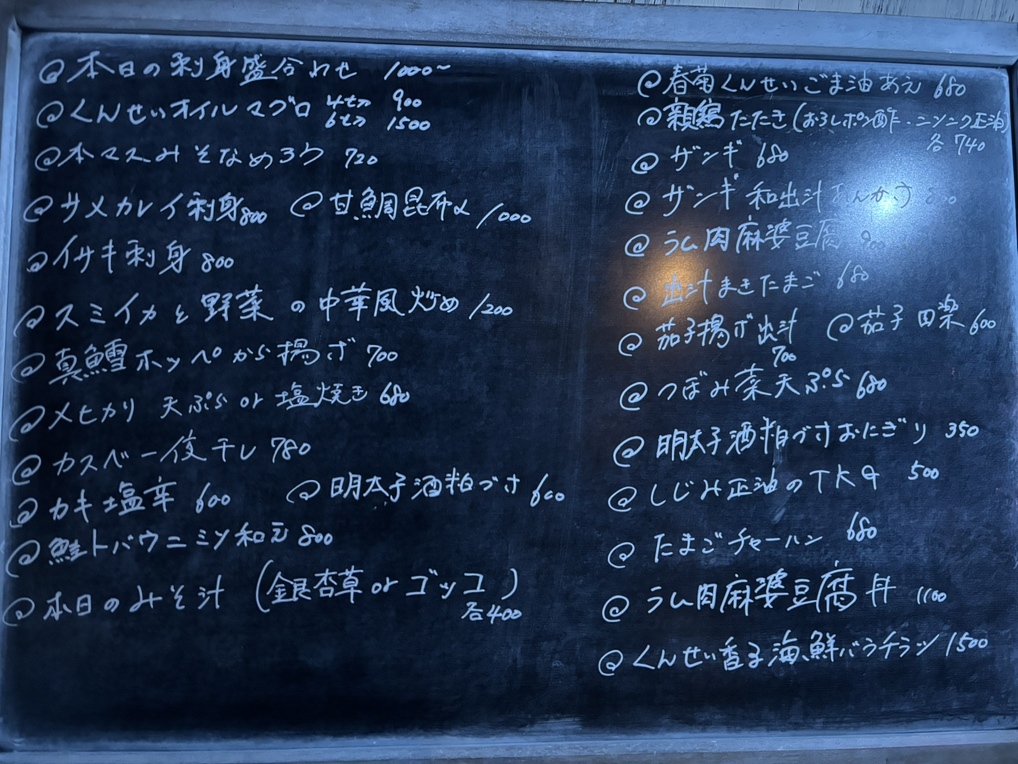 @本日の刺身盛合わせ 1000~
@くんせいオイルマグロ 4切 900
6切 1500
@本マスみそなめろう 720
@サメカレイ刺身 800 @甘鯛昆布〆 1000
@イサキ刺身 800
@スミイカと野菜の中華風炒め 1200
@真鱈ホッペから揚げ 700
@メヒカリ 天ぷらor塩焼き 680
@カスベ一夜干し 780
@カキ塩辛 600 @明太子酒粕づけ 600
@鮭トバウニミソ和え 800
@本日のみそ汁 (銀杏草orゴッコ)
各400
@春菊くんせいごま油あえ 680
@親鶏たたき(おろしポン酢・ニンニク正油)
各740
@ザンギ 680
@ザンギ 和出汁あんかけ
@ラム肉麻婆豆腐 900
@出汁まきたまご 680
@茄子揚げ出汁 @茄子田楽 600
700
@つぼみ菜天ぷら 680
@明太子酒粕づけおにぎり 350
@しじみ正油のTKG 500
@たまごチャーハン 680
@ラム肉麻婆豆腐丼 1100
@くんせい香る海鮮バラチラシ 1500